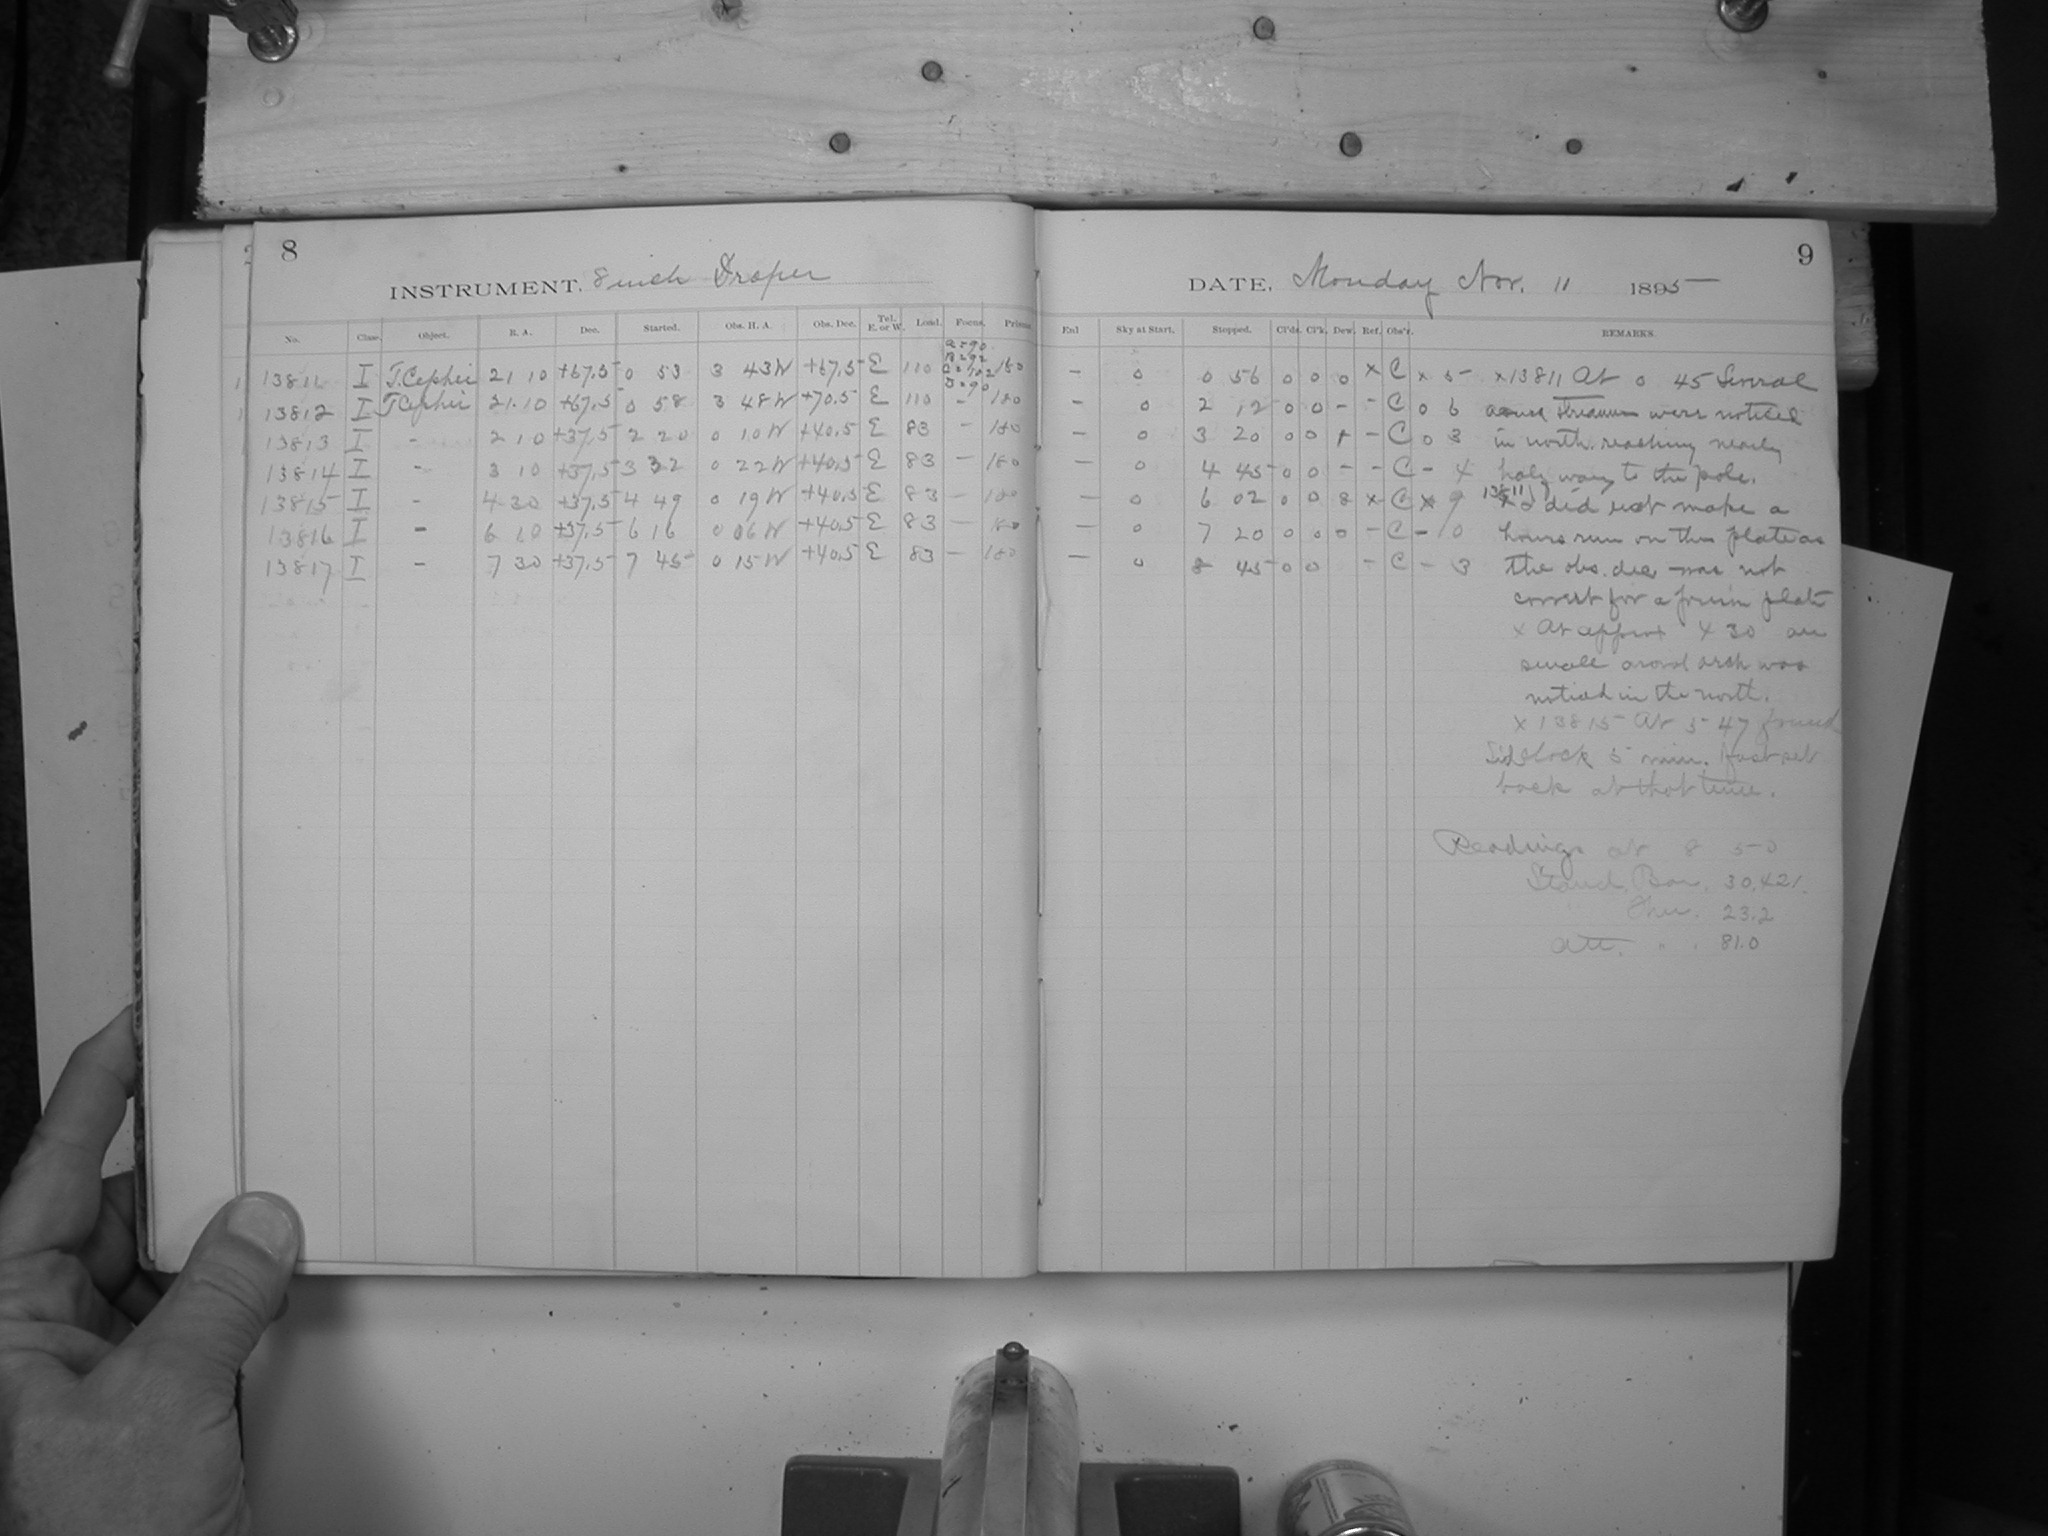 8
INSTRUMENT. 8 inch Draper
No. Class. Object. R. A. Dec. Started. Obs. H. A. Obs. Dec. Tel. E. or W. Load. Focus. Prisms
13811 I T. Cephei 21 10 +67.5 0 53 3 43W +67.5 E 110 180
13812 I T Cephei 21.10 +67.5 0 58 3 48W +70.5 E 110 - 180
13813 I - 2 10 +37.5 2 20 0 10W +40.5 E 83 - 180
13814 I - 3 10 +37.5 3 32 0 22W +40.5 E 83 - 180
13815 I - 4 30 +37.5 4 49 0 19W +40.5 E 83 - 180
13816 I - 6 10 +37.5 6 16 0 06W +40.5 E 83 - 180
13817 I - 7 30 +37.5 7 45 0 15W +40.5 E 83 - 180
9
DATE. Monday Nov. 11 1895
Enl Sky at Start. Stopped. Cl'ds. Cl'k. Dew. Ref. Obs'r. REMARKS.
- 0 0 56 0 0 0 x C x 5 x13811 At 0 45 Several
- 0 2 12 0 0 - - C 0 6 streamers were noticed
- 0 3 20 0 0 - C 0 3 in north reaching nearly
- 0 4 45 0 0 - - C - 4 half way to the pole.
- 0 6 02 0 0 8 x C x 9 did not make a
- 0 7 20 0 0 0 - C - 10 hours run on this plate as
- 0 8 45 0 0 - C - 3 the obs. dec was not
correct for a prism plate
x At approx 4 30 an
small arch was
noticed in the north.
x 13815 At 5 47 found
Sid Clock 5 min. fast set
back at that time.
Readings at 8 50
Stand. Bar. 30.421.
Ther. 23.2
Att. " . 81.0